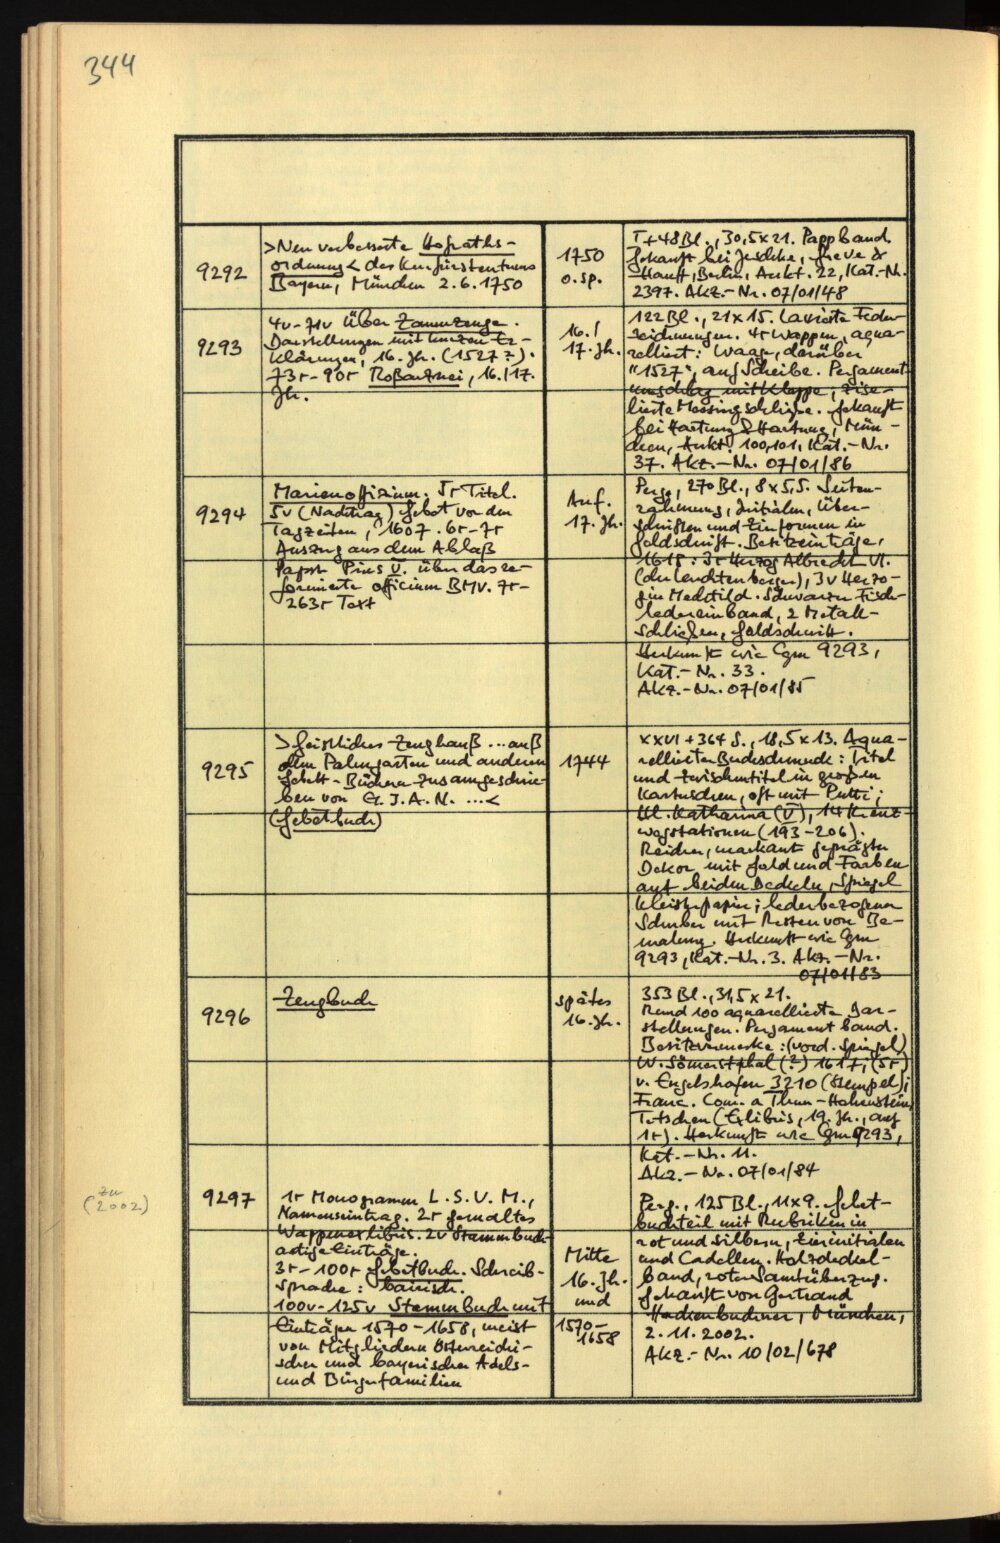 344
9292
>Neu verbesserte Hofraths-
ordnung< des Kurfürstentums
Bayern, München 2.6.1750
1750
o.Sp.
I+48Bl., 30,5x21. Pappband.
Gekauft bei Jeschke, Greve &
Hauff, Berlin, Aukt. 22, Kat.-Nr.
2397. Akz.-Nr. 07/01/48
9293
4v-71v Über Zaumzeuge.
Darstellungen mit kurzen Er-
klärungen, 16. Jh. (1527?).
73r-90r Roßarznei, 16./17.
Jh.
16./
17. Jh.
122Bl., 21x15. Lavierte Feder-
zeichnungen. 4r Wappen, aqua-
relliert: Waage, darüber
"1527", auf Scheibe. Pergament-
umschlag mit Klappe, zise-
lierte Messingschließe. Gekauft
bei Hartung & Hartung, Mün-
chen, Aukt. 100,101, Kat.-Nr.
37. Akz.-Nr. 07/01/86
9294
Marienoffizium. 5r Titel.
5v (Nachtrag) Gebet vor den
Tagzeiten, 1607. 6r-7r
Auszug aus dem Ablaß
Papst Pius V. über das re-
formierte officium BMV. 7r-
263r Text
Anf.
17. Jh.
Perg., 270Bl., 8x5,5. Seiten-
rahmung, Initialen, Über-
schriften und Zierformen in
Goldschrift. Besitzeinträge,
1615: 3r Herzog Albrecht VI.
(der Leuchtenberger), 3v Herzo-
gin Mechtild. Schwarzer Fisch-
ledereinband, 2 Metall-
schließen, Goldschnitt.
Herkunft wie Cgm 9293,
Kat.-Nr. 33.
Akz.-Nr. 07/01/85
9295
>Geistliches Zeughauß ... auß
dem Palmgarten und anderen
Gebett-Büchern zusamgeschrie-
ben von G.J.A.N. ...<
(Gebetbuch)
1744
XXVI+364 S., 18,5x13. Aqua-
rellierter Buchschmuck: Titel
und Zwischentitel in großen
Kartuschen, oft mit Putti;
Hl. Katharina (V), 14 Kreuz-
wegstationen (193-206).
Reicher, markant geprägter
Dekor mit Gold und Farben
auf beiden Deckeln, Spiegel
Kleisterpapier; lederbezogener
Schuber mit Resten von Be-
malung. Herkunft wie Cgm
9293, Kat.-Nr. 3. Akz.-Nr.
07/01/83
9296
Zeugbuch
spätes
16. Jh.
353 Bl., 31,5x21.
Rund 100 aquarellierte Dar-
stellungen. Pergamentband.
Besitzvermerke: (vord. Spiegel)
W. (?) 1617; (5r)
v. Engelshofen 3210 (Stempel);
Franc. Com. a Thun-Hohenstein,
Tetschen (Exlibris, 19. Jh., auf
1r). Herkunft wie Cgm 9293,
Kat.-Nr. 11.
Akz.-Nr. 07/01/84
zu
(2002)
9297
1r Monogramm L.S.V.M.,
Namenseintrag. 2r gemaltes
Wappenexlibris. 2v Stammbuch-
artige Einträge.
3r-100r Gebetbuch. Schreib-
sprache: bairisch.
100v-125v Stammbuch mit
Einträgen 1570-1658, meist
von Mitgliedern österreichi-
scher und bayerischer Adels-
und Bürgerfamilien
Mitte
16. Jh.
und
1570-
1658
Perg., 125Bl., 11x9. Gebet-
buchteil mit Rubriken in
rot und silbern, Zierinitialen
und Cadellen. Holzdeckel-
band, roter Samtüberzug.
Gekauft von Gertrand
Hackenbuchner, München,
2.11.2002.
Akz.-Nr. 10/02/678